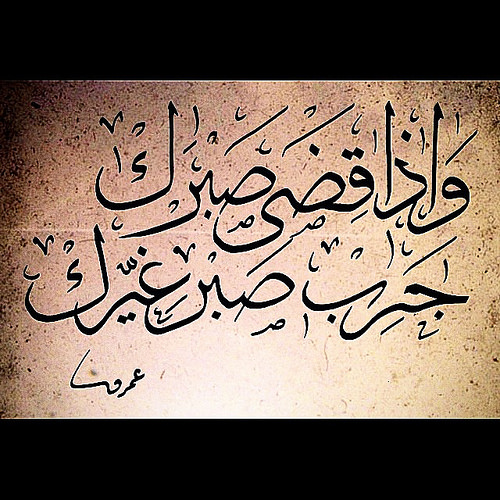 وَاذا قِضَى صَبَرك
جَرِب صَبر غِيّرك